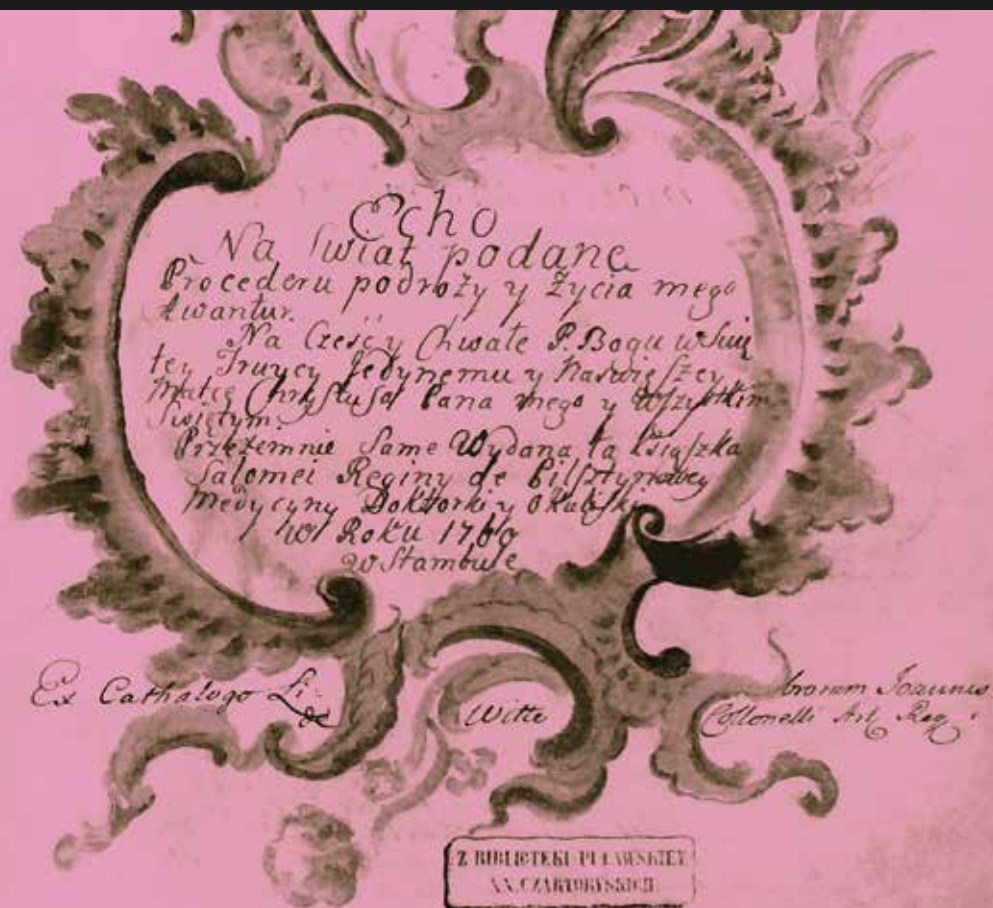 Echo
Na Swiat podane
Procederu podroży y Życia mego
Awantur.
Na Cześć y Chwałe P. Bogu w Swię
tey Truycy Jedynemu y Naswięszey
Matce Chrystusa Pana mego y Wszystkim
Swiętym.
Przezemnie Same Wydana ta Ksiąszka
Salomei Reginy de Pilsztynowey
Medycyny Doktorki y Okulistki
w Roku 1760
w Stambule
Ex Cathalogo Li-brorum Joannis
de Witte Collonelli Art. Reg.
Z BIBLIOTEKI PUŁAWSKIEY
XX. CZARTORYSKICH